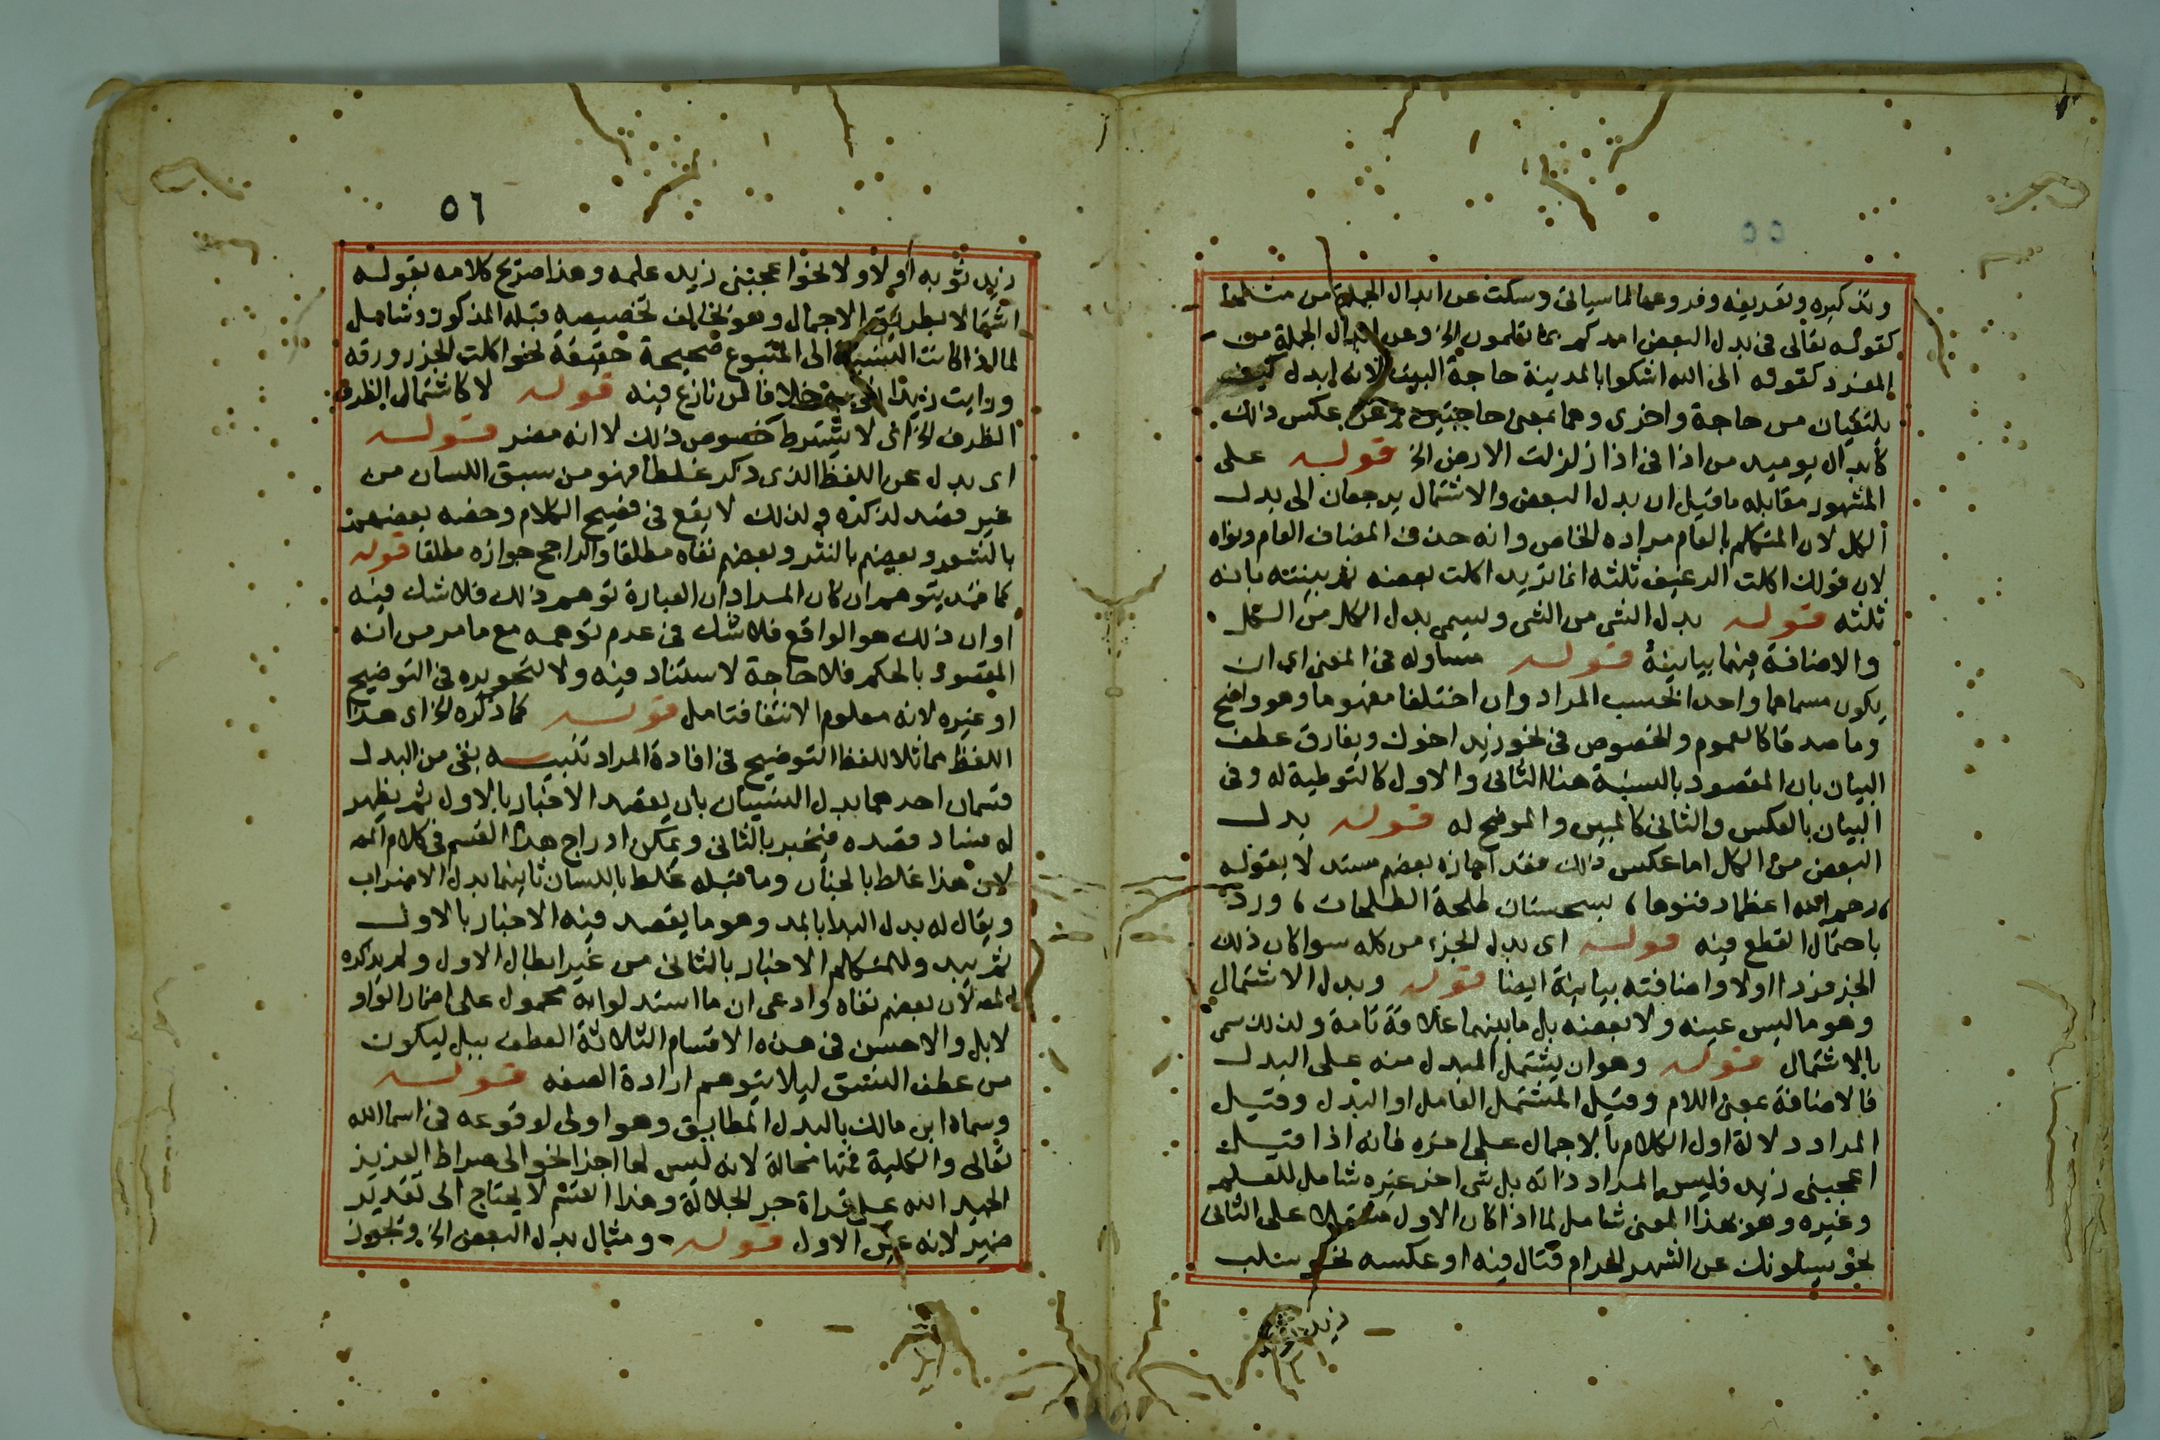 وتذكيره وتعريفه وفروعهما لما سياتى وسكت عن ابدال الجملة من مثلها
كقوله تعالى فى بدل البعض امدكم بما تعلمون الخ وعن ابدال الجملة من
المفرد كقوله الى الله اشكوا بالمدينة حاجة البيت لانه ابدل كيف
يلتقيان من حاجة واخرى وهما بمعنى حاجتين وعن عكس ذلك
كأبدال يوميد من اذا فى اذا زلزلت الارض الخ قوله على
المشهور مقابله ما قيل ان بدل البعض والاشتمال يرجعان الى بدل
الكل لان المتكلم بالعام مراده الخاص وانه حذف المضاف العام ونواه
لان قولك اكلت الرغيف ثلثه انما تريد اكلت بعضه ثم بينته بانه
ثلثه قوله بدل الشى من الشى ويسمى بدل الكل من الكل
والاضافة فيهما بيانية قوله مساوله فى المعنى اى ان
يكون مسماهما واحدا بحسب المراد وان اختلفا مفهوما وهو واضح
وما صدقا كالعموم والخصوص فى نحو زيد اخوك ويفارق عطف
البيان بان المقصود بالنسبة هنا الثانى والاول كالتوطية له وفى
البيان بالعكس والثانى كالمبين والموضح له قوله بدل
البعض من الكل اما عكس ذلك فقد اجازه بعضهم مستدلا بقوله
رحم الله اعظما دفنوها، بسجستان طلحة الطلحات، ورد
باحتمال القطع فيه قوله اى بدل الجزء من كله سوا كان ذلك
الجز فردا اولا واضافته بيانية ايضا قوله وبدل الاشتمال
وهو ما ليس عينه ولا بعضه بل ما بينهما علاقة تامة ولذلك سمى
بالاشتمال قوله وهو ان يشتمل المبدل منه على البدل
فالاضافة بمعنى اللام وقيل المشتمل العامل او البدل وقيل
المراد دلالة اول الكلام بالاجمال على اخره فانه اذا قيل
اعجبنى زيد فليس المراد ذاته بل شى اخر غيره شامل للعلم
وغيره وهو بهذا المعنى شامل لما اذا كان الاول مشتملا على الثانى
نحو يسلونك عن الشهر الحرام قتال فيه او عكسه نحو سلب
زيد
٥٦
زيد ثوبه اولا ولا نحو اعجبنى زيد علمه وهذا صريح كلامه بقوله
اشتمالا بطريق الاجمال وهو يخالف تخصيصه قبله المذكور وشامل
لما اذا كانت النسبة الى المتبوع صحيحة حقيقة نحو اكلت الخبز ورقه
ورايت زيدا خلافا لمن نازع فيه قوله لا كاشتمال الظرف
الظرف الخ اى لا يشترط خصوص ذلك لا انه مضر قوله
اى بدل عن اللفظ الذى ذكر غلطا فهو من سبق اللسان من
غير قصد لذكره ولذلك لا يقع فى فصيح الكلام وخصه بعضهم
بالشعر وبعضهم بالنثر وبعضهم نفاه مطلقا والراجح جوازه مطلقا قوله
كما قد يتوهم ان كان المراد ان العبارة توهم ذلك فلا شك فيه
او ان ذلك هو الواقع فلا شك فى عدم توهمه مع ما مر من انه
المقصود بالحكم فلا حاجة لاستناد فيه ولا لتحويره فى التوضيح
او غيره لانه معلوم الانتفا فتامل قوله كما ذكره الخ اى هذا
اللفظ مماثلا للفظ التوضيح فى افادة المراد تنبيه بقى من البدل
قسمان احدهما بدل النسيان بان يقصد الاخبار بالاول ثم يظهر
له فساد قصده فيخبر بالثانى ويمكن ادراج هذا القسم فى كلام المص
لان هذا غلط بالجنان وما قبله غلط باللسان ثانيهما بدل الاضراب
ويقال له بدل البدا بالمد وهو ما يقصد فيه الاخبار بالاول
ثم يبدو للمتكلم الاخبار بالثانى من غير ابطال الاول ولم يذكره
المص لان بعضهم نفاه وادعى ان ما استدلوا به محمول على اضمار الواو
لا بل والاحسن فى هذه الاقسام الثلاثة العطف ببل ليكون
من عطف النسق ليلا يتوهم ارادة الصفه قوله
وسماه ابن مالك بالبدل المطابق وهو اولى لوقوعه فى اسما الله
تعالى والكلية فيها محالة لانه ليس لها اجزا نحو الى صراط العزيز
الحميد الله على قراة جر الجلالة وهذا القسم لا يحتاج الى تقدير
ضمير لانه عين الاول قوله ومثال بدل البعض الخ ويجوز